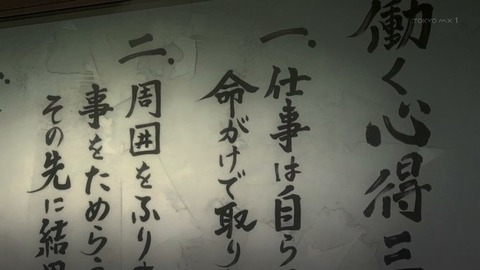 TOKYO MX 1
働く心得三
一．仕事は自ら
命がけで取り
二．周囲をふり
事をためらう
その先に結果